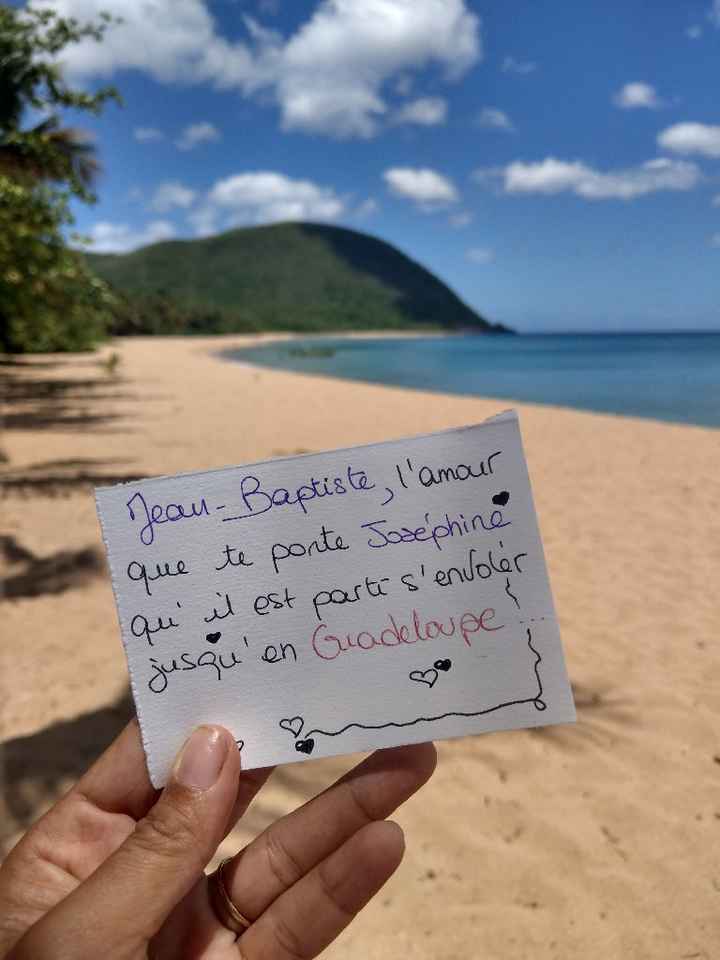 Jean-Baptiste, l'amour
que te porte Joséphine
qu'il est parti s'envoler
jusqu'en Guadeloupe ...